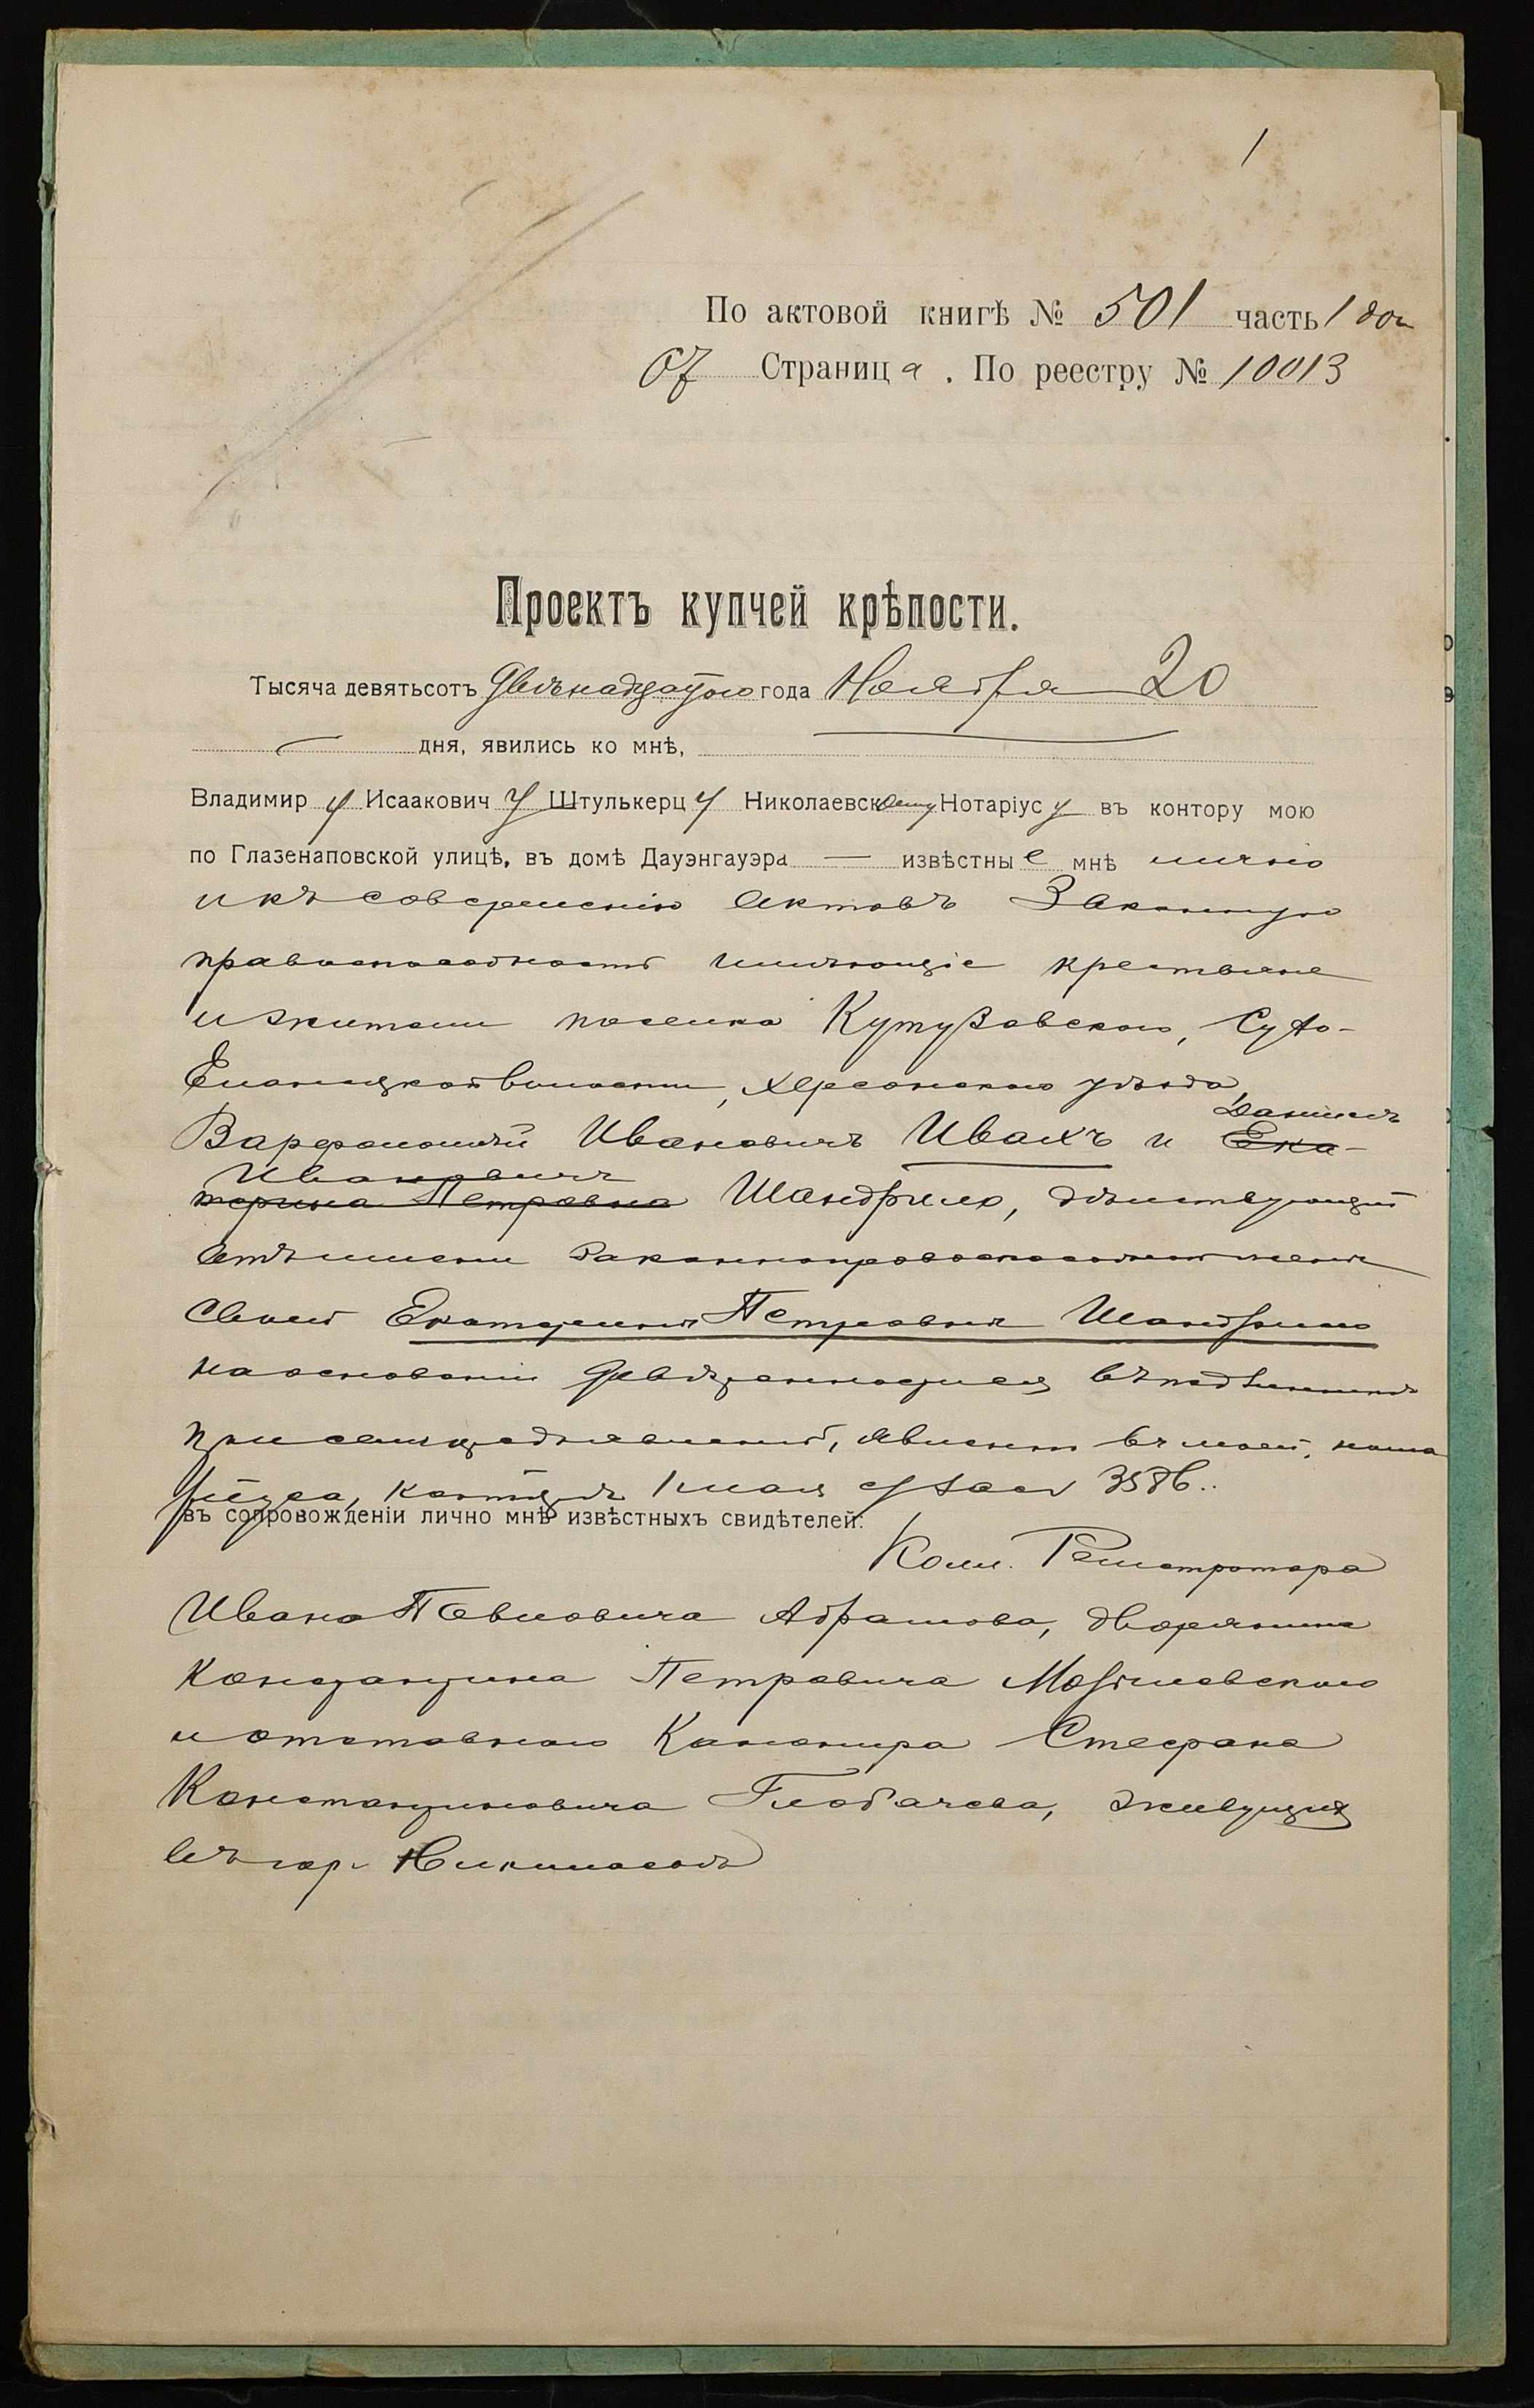 1
По актовой книгѣ № 501 часть 1
Страница. По реестру № 10013
Проектъ купчей крѣпости.
Тысяча девятьсотъ двѣнадцатого года Ноября 20
дня, явились ко мнѣ,
Владимиру Исааковичу Штулькерцу Николаевскому Нотаріусу въ контору мою
по Глазенаповской улицѣ, въ домѣ Дауэнгауэра — извѣстные мнѣ лично
и къ совершенію актовъ законную
правоспособность имѣющіе крестьяне
и жители поселка Кутузовского, Сухо-
Еланецкой волости, Херсонского уѣзда,
Даніилъ
Варфоломѣй Ивановичъ Ивахъ и Ека-
Ивановичъ
терина Петровна Шандрило, дѣйствующій
отъ имени законноправоспособной жены
своей Екатерины Петровны Шандрило
на основаніи довѣренности въ подлинникѣ
при семъ предъявленной, явленной въ моей, нота
ріуса, конторѣ мая 3586..
въ сопровожденіи лично мнѣ извѣстныхъ свидѣтелей:
Колл. Регистратора
Ивана Павловича Абрамова, дворянина
Константина Петровича Могилевского
и отставного Канонира Стефана
Константиновича Глобачева, живущихъ
въ гор. Николаевѣ